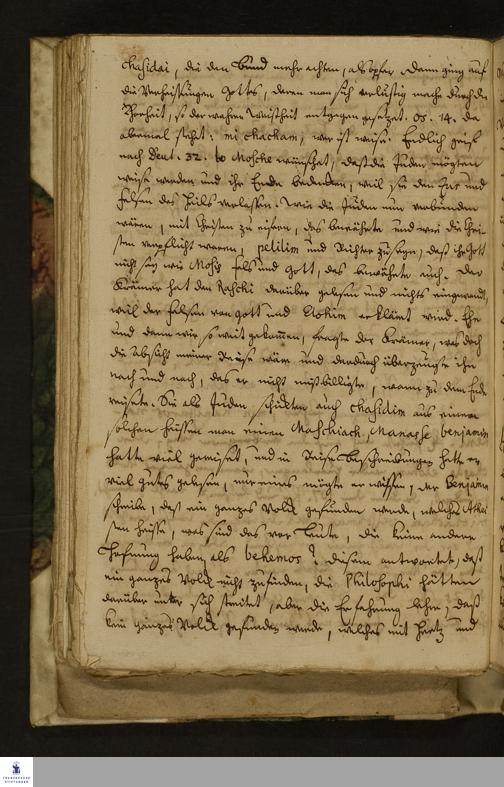 chasidai, die den Bund mehr achten, als opfer. Dann ging auf
die Verheissungen Gottes, deren man sich verlustig mache durch die
Thorheit, so der wahren Weisheit entgegen gesetzet. os. 14. da
abermal stehet: mi chacham, wer ist weise. Endlich
nach Deut. 32. so Mosche wünschet, dass die Juden mögten
weise werden und ihr Ende bedencken, weil sie den Zur und
Felsen des Heils verlassen. Wie die Juden nun verbunden
wären, mit Christen zu eifern, das bewährete und wie die Chri-
sten verpflicht wären, pelilim und Richter zu seyn, dass ihr Gott
nicht sey wie Mosis Fels und Gott, das bewährete auch. Der
Krämer hat den Raschi darüber gelesen und nichts eingewandt,
weil der Felsen von Gott und Elohim erklärt wird. Ehe
und dann wir so weit gekommen, fragte der Krämer, was doch
die Absicht meiner Reise wäre und dadurch überzeugte ihn
nach und nach, das er nicht missbilligte, wann zu dem Ende
reisete. Sie als Juden schickten auch Chasidim aus einem
solchen Hussen von einem Maschiach. Manasse benjamin
hatte viel gereiset, und in Reise-Beschreibungen hatte er
viel gutes gelesen, nur eines mögte er wissen, der Benjamin
schreibe, dass ein ganzes Volck gefunden werde, welches Athei
sten heisse, was sind das vor Leute, die keine andere
Hofnung haben als behemos? Diesem antwortete, dass
ein ganzes Volck nicht zu finden, die Philosophi hätten
darüber unter sich streitet, aber die Erfahrung lehre, dass
kein ganzes Volck gefunden werde, welches mit Hertz und
FRANCKESCHE
STIFTUNGEN